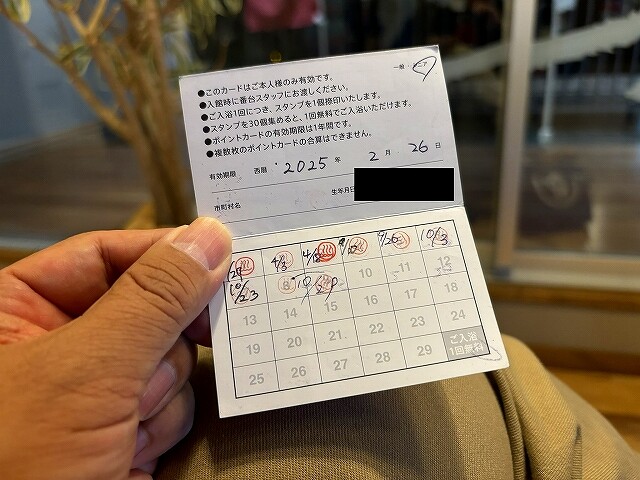 一般・シニア
●このカードはご本人様のみ有効です。
●入館時に番台スタッフにお渡しください。
●ご入浴1回につき、スタンプを1個捺印いたします。
●スタンプを30個集めると、1回無料でご入浴いただけます。
●ポイントカードの有効期限は1年間です。
●複数枚のポイントカードの合算はできません。
有効期限 西暦 2025 年 2 月 26 日
市町村名 生年月日
4/3 4/18 9/26 10/3
10/23 8 10 11 12
13 14 15 16 17 18
19 20 21 22 23 24
25 26 27 28 29 ご入浴
1回無料